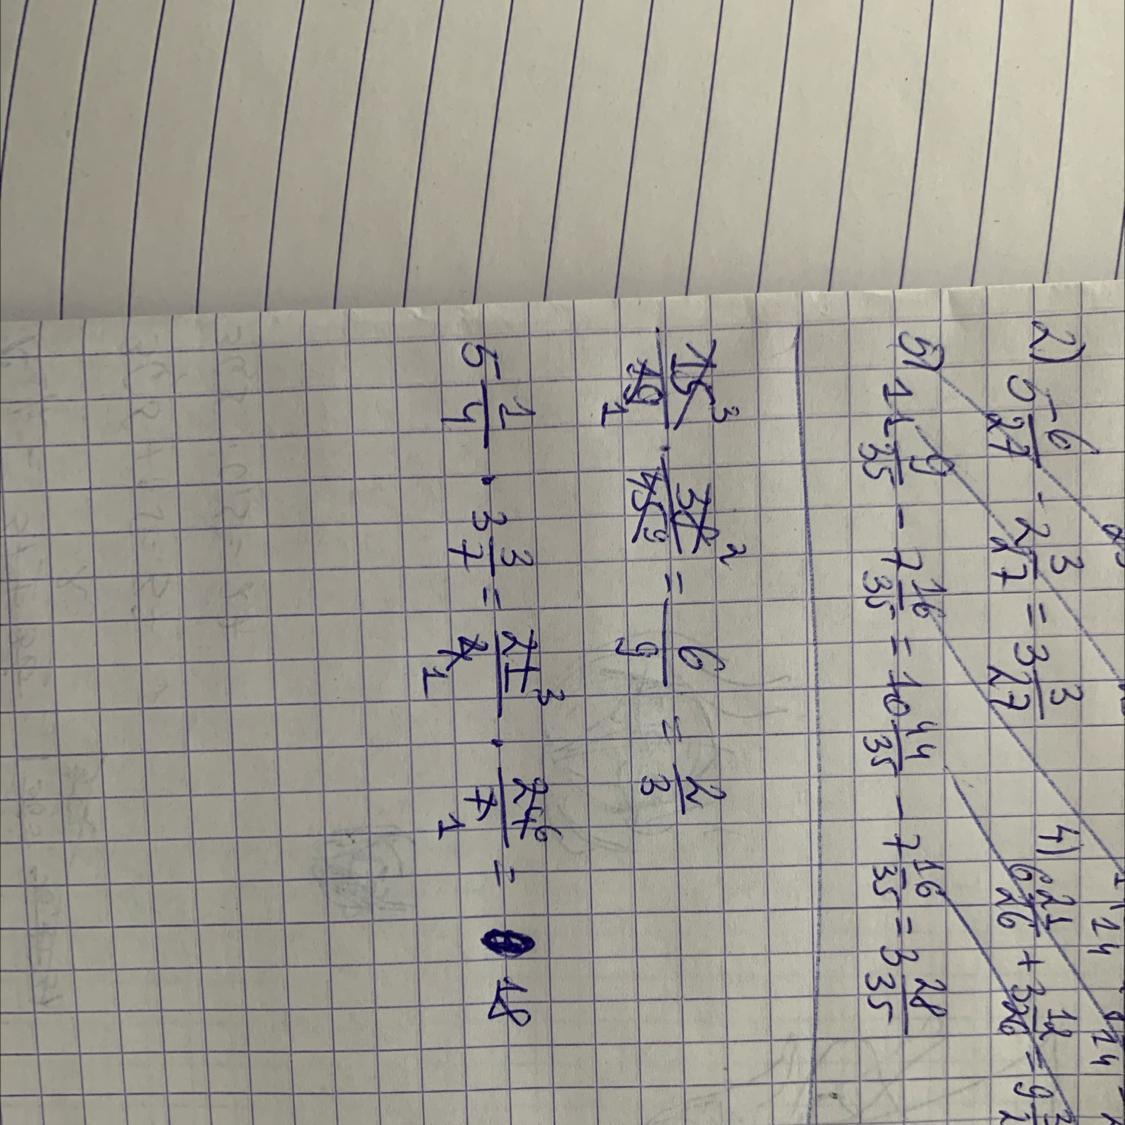 2) 5 6/27 - 2 3/27 = 3 3/27
4) 6 21/26 + 3 12/26 = 9
5) 11 9/35 - 7 16/35 = 10 44/35 - 7 16/35 = 3 28/35
15 3/19 1 · 38 2/45 9 = 6/9 = 2/3
5 1/4 · 3 3/7 = 21 3/4 1 · 24 6/7 1 = 18